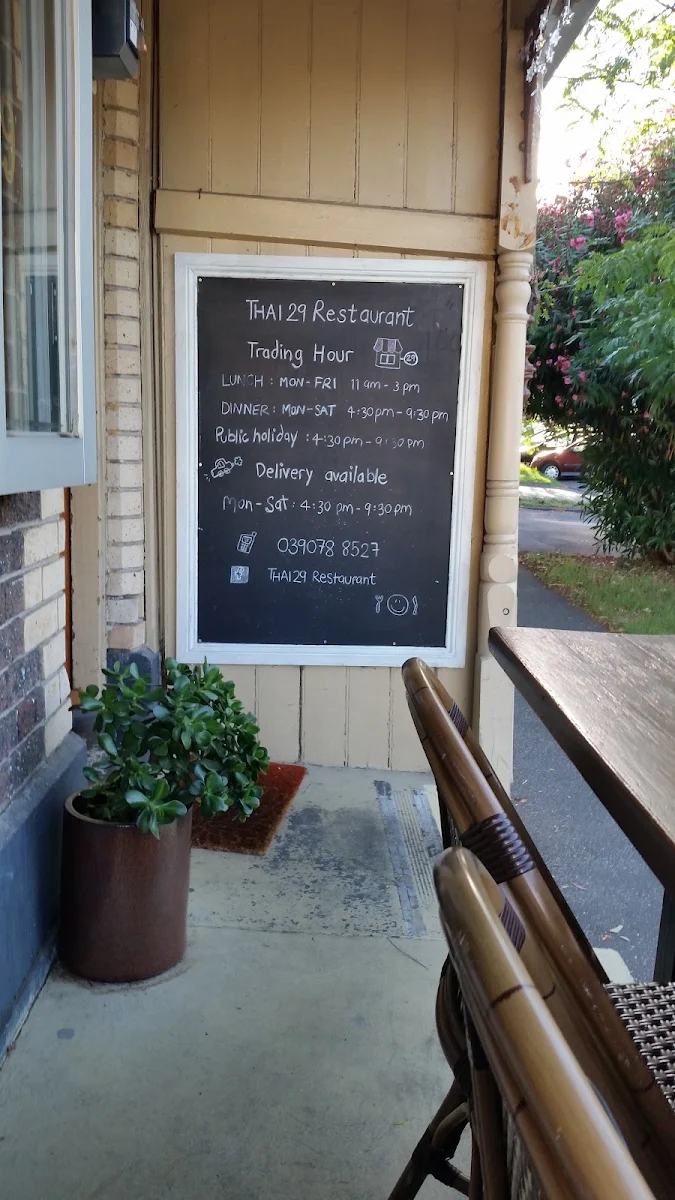 THAI 29 Restaurant
Trading Hour
29
LUNCH : MON-FRI 11 am - 3 pm
DINNER : MON-SAT 4:30 pm - 9:30 pm
Public holiday : 4:30 pm - 9:30 pm
Delivery available
Mon-Sat : 4:30 pm - 9:30 pm
039078 8527
THAI 29 Restaurant